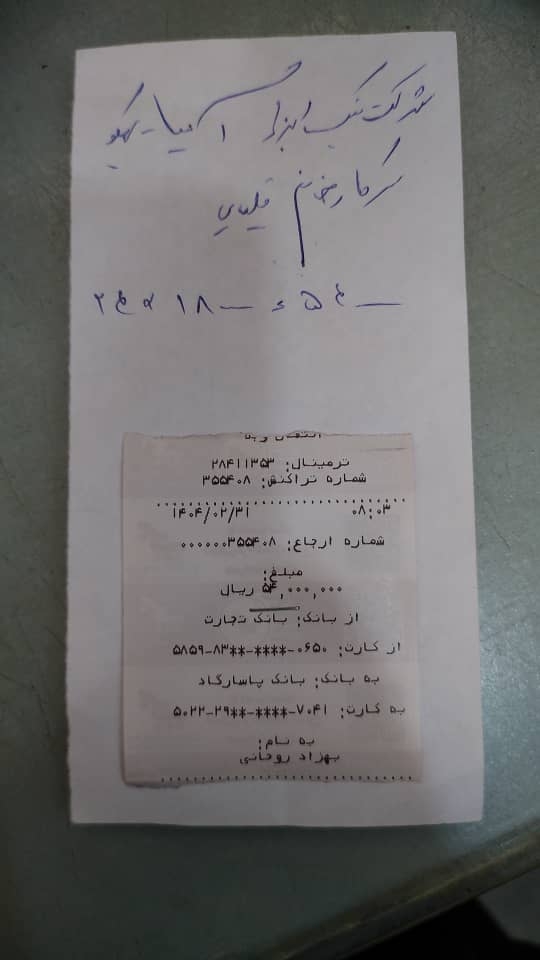 شرکت
سرکار خانم
انتقال وجه
ترمینال: ۲۸۴۱۱۳۵۳
شماره تراکنش: ۳۵۵۴۰۸
۱۴۰۴/۰۲/۳۱ ۰۸:۰۳
شماره ارجاع: ۰۰۰۰۰۰۳۵۵۴۰۸
مبلغ:
۵۴,۰۰۰,۰۰۰ ریال
از بانک: بانک تجارت
از کارت: ۵۸۵۹-۸۳**-****-۰۶۵۰
به بانک: بانک پاسارگاد
به کارت: ۵۰۲۲-۲۹**-****-۷۰۴۱
به نام:
بهزاد روحانی